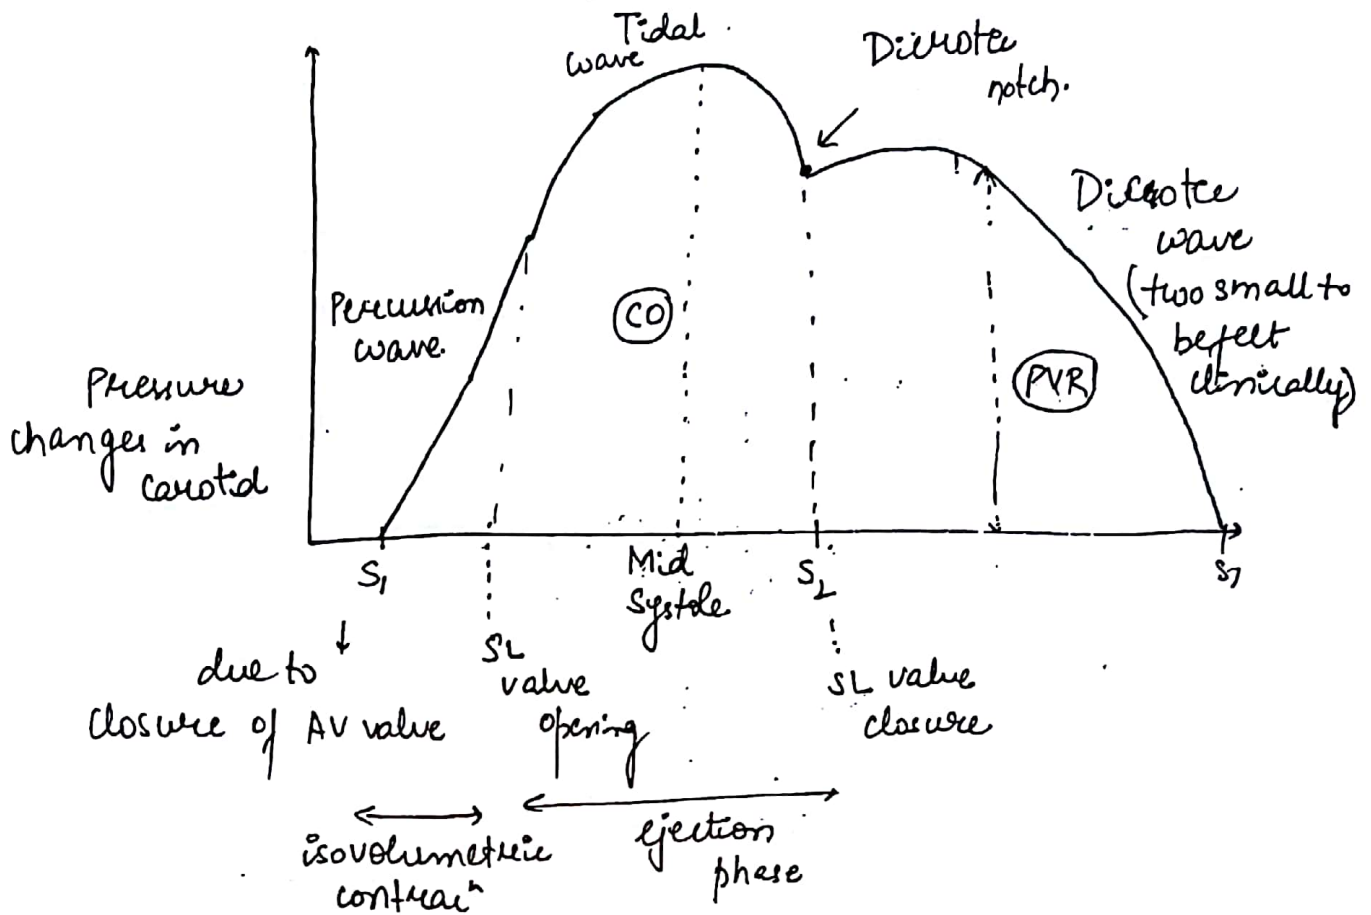 Tidal
wave
Dicrotic
notch.
Dicrotic
wave
(two small to
be felt
clinically)
Percussion
wave.
CO
PVR
Pressure
changes in
carotid
S₁
Mid
Systole
S₂
S₁
due to
closure of AV valve
SL
valve
opening
SL valve
closure
isovolumetric
contracⁿ
ejection
phase